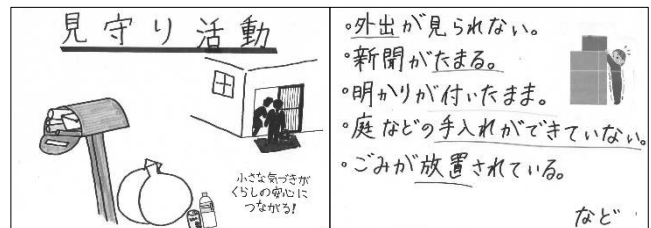 見守り活動
小さな気づきが
くらしの安心に
つながる!
・外出が見られない。
・新聞がたまる。
・明かりが付いたまま。
・庭などの手入れができていない。
・ごみが放置されている。
など